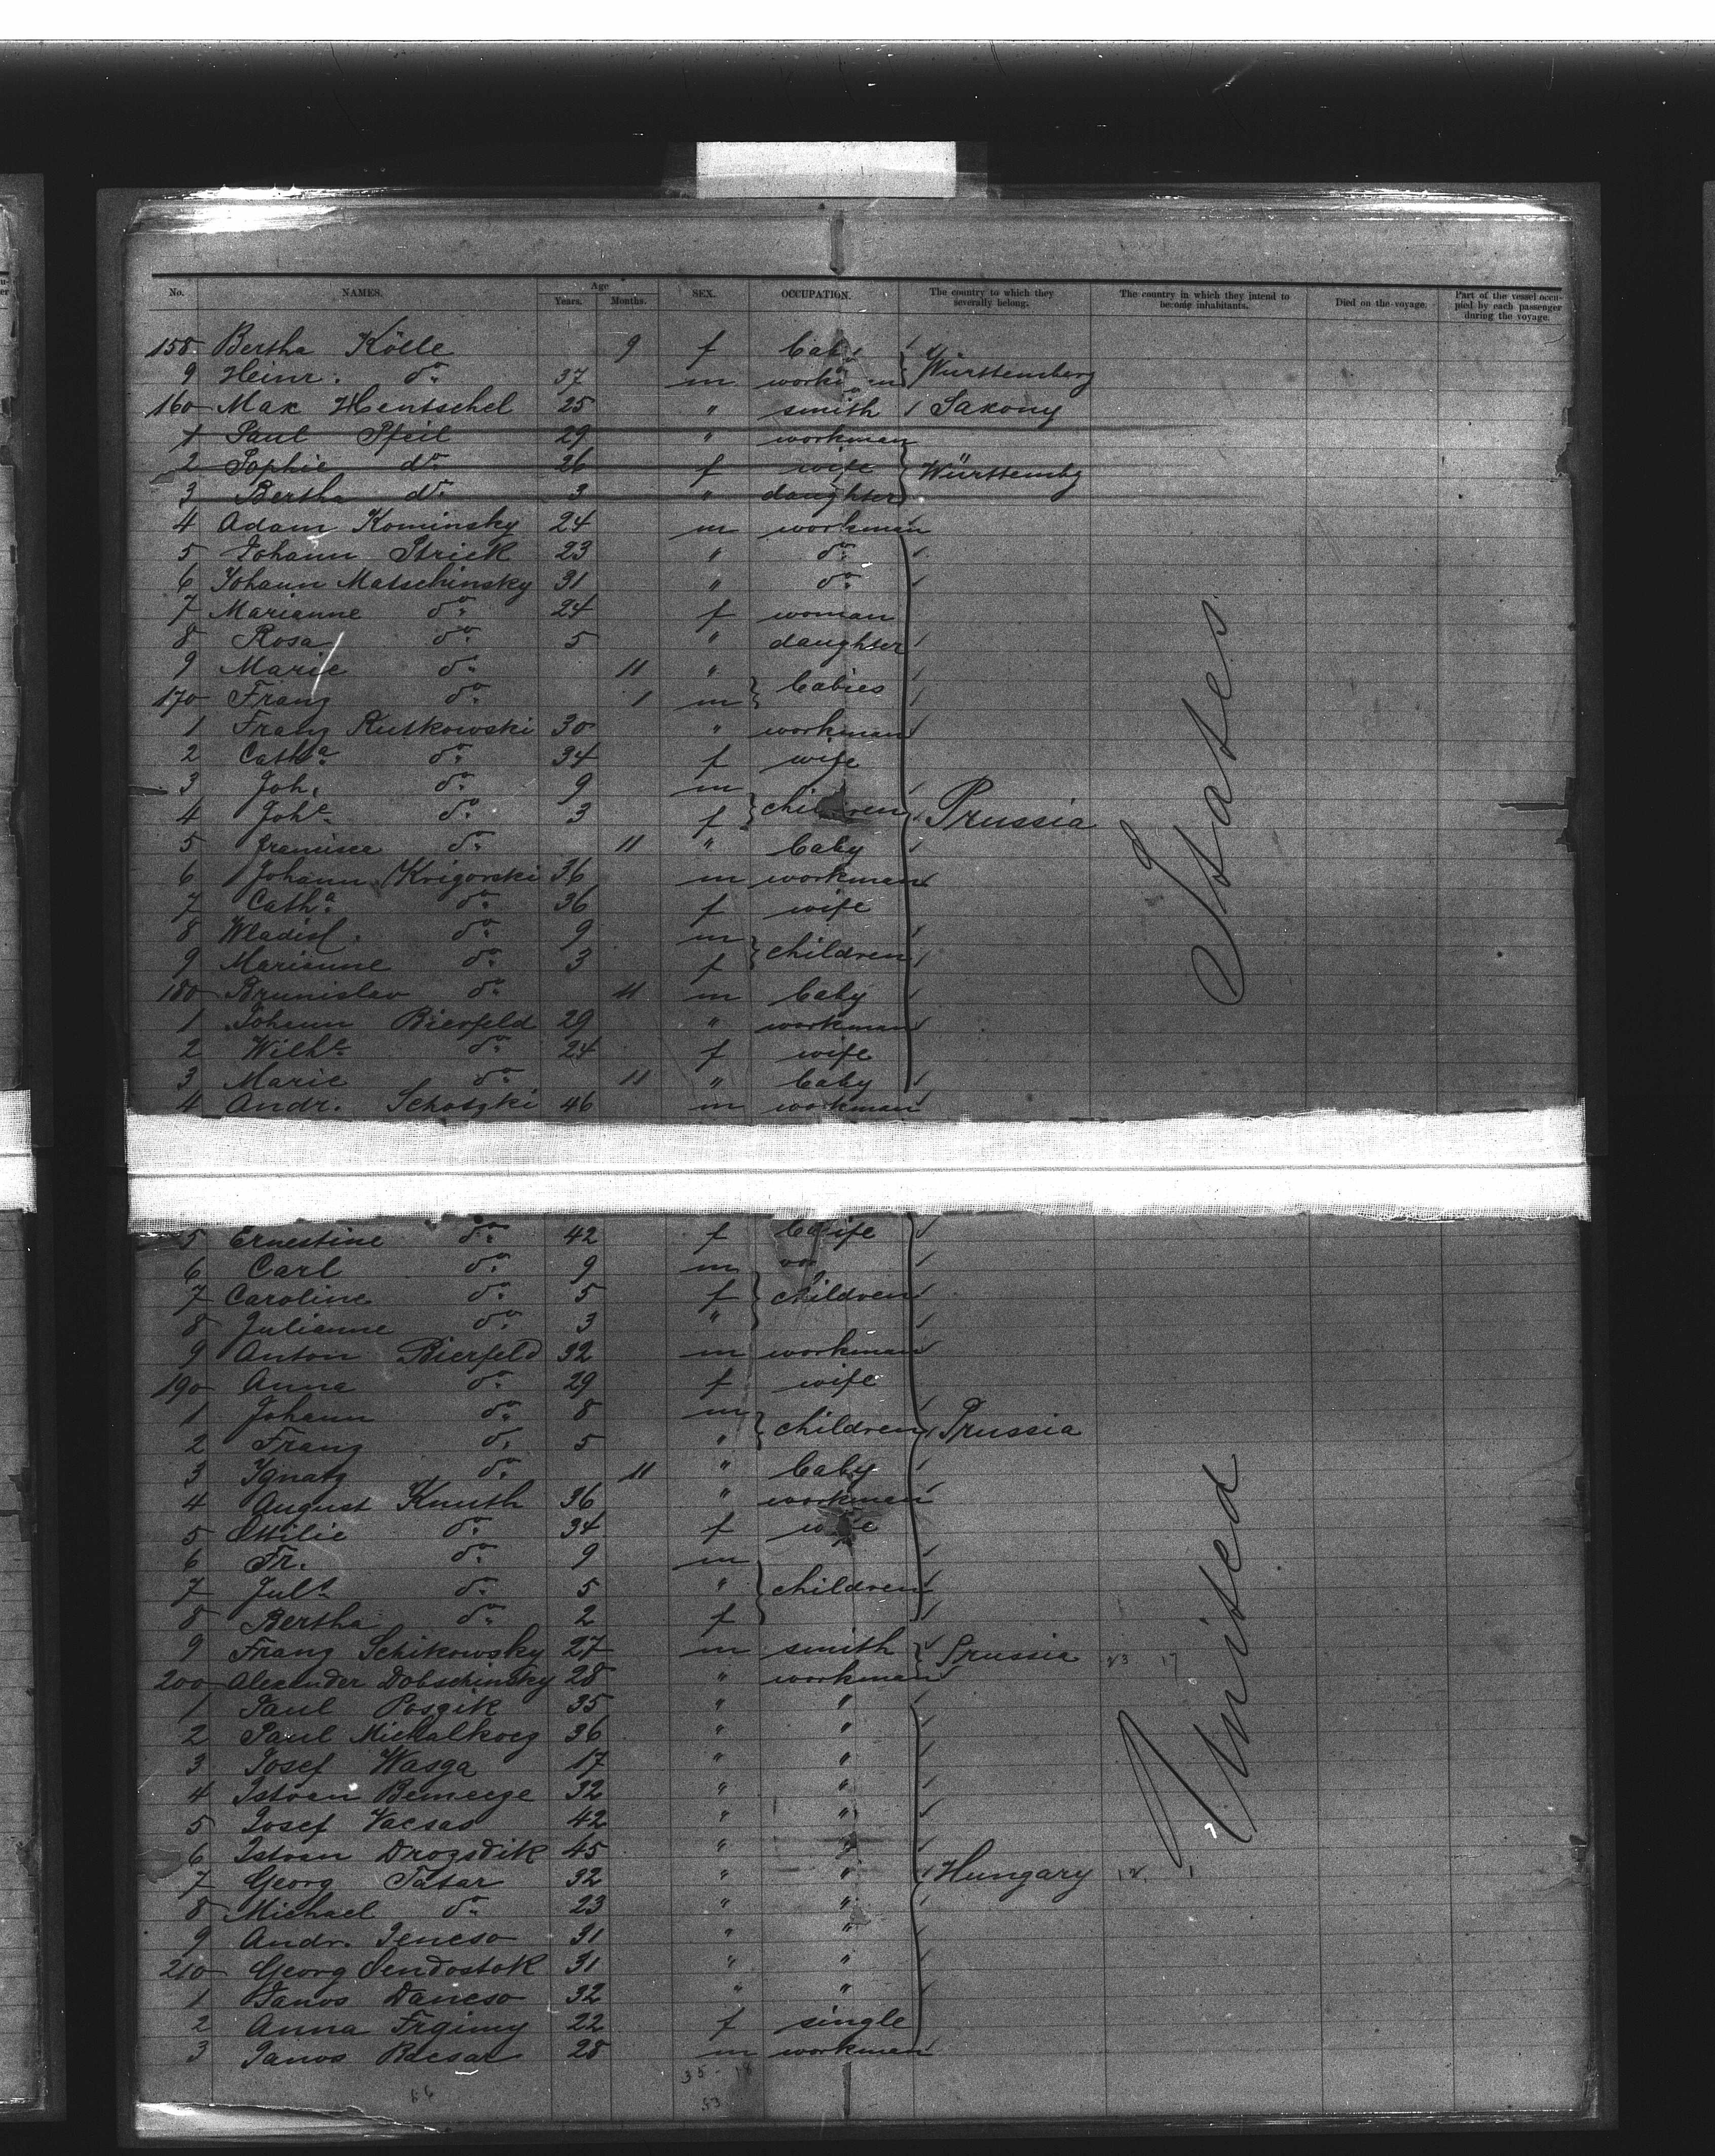 No. NAMES. Age Years. Months. SEX. OCCUPATION. The country to which they severally belong. The country in which they intend to become inhabitants. Died on the voyage. Part of the vessel occupied by each passenger during the voyage.
158 Bertha Kölle 9 f baby
9 Heinr. do 37 m Württemberg
160 Max Hentschel 25 " smith Saxony
1 Paul Pfeil 29 " workman
2 Sophie do 26 f wife Württembg
3 Bertha do 3 " daughter
4 Adam Kominsky 24 m workman
5 Johann Strick 23 " do
6 Johann Matschinsky 31 " do
7 Marianne do 24 f woman
8 Rosa do 5 " daughter
9 Marie do 11 " babies
170 Franz do 1 m
1 Franz Rutkowski 30 " workman
2 Catha do 34 f wife
3 Joh. do 9 m children
4 Johe do 3 f Prussia
5 Francisca do 11 " baby
6 Johann Krigorski 36 m workman
7 Catha do 36 f wife
8 Wladisl. do 9 m children
9 Marianne do 3 f
180 Brunislav do 11 m baby
1 Johann Bierfeld 29 " workman
2 Wilhe do 24 f wife
3 Marie do 11 " baby
4 Andr. Schotzki 46 m workman
5 Ernestine do 42 f wife
6 Carl do 9 m
7 Caroline do 5 f children
8 Julianne do 3 "
9 Anton Bierfeld 32 m workman
190 Anna do 29 f wife
1 Johann do 8 m children Prussia
2 Franz do 5 "
3 Ignatz do 11 " baby
4 August Knuth 36 " workman
5 Ottilie do 34 f wife
6 Fr. do 9 m
7 Juls do 5 " children
8 Bertha do 2 f
9 Franz Schikowsky 27 m smith Prussia
200 Alexander Dobschinsky 28 " workman
1 Paul Poszik 35 " "
2 Paul Michalkocz 36 " "
3 Josef Wasga 17 " "
4 Istvan 32 " "
5 Josef Vacsas 42 " "
6 Istvan Drozsdik 45 " "
7 Georg Tatar 32 " " Hungary
8 Michael do 23 " "
9 Andr. Jencso 31 " "
210 Georg Sendostok 31 " "
1 Janos Dancso 32 " "
2 Anna 22 f single
3 Janos 28 m workman
United States